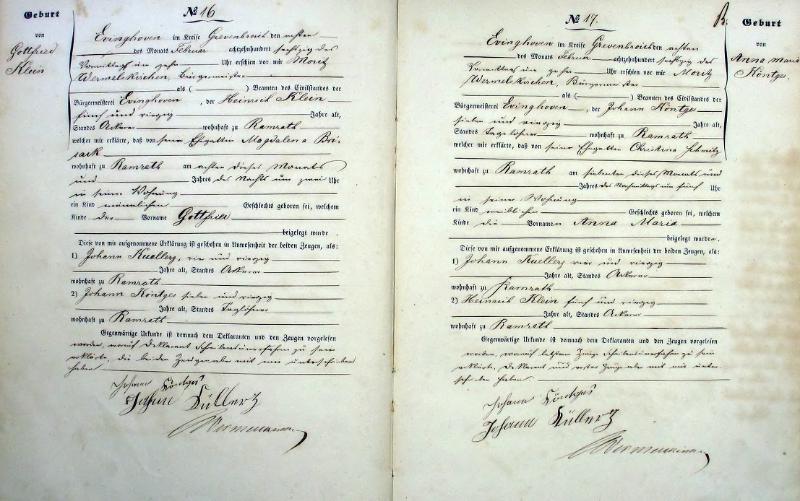 Geburt
von
Gottfried
Klein
№ 16
Evinghoven im Kreise Grevenbroich den ersten
des Monats Februar achtzehnhundert sechszig des
Vormittags um zehn Uhr erschien vor mir Moritz
Wermelskirchen, Bürgermeister
als ( ) Beamten des Civilstandes der
Bürgermeisterei Evinghoven, der Heinrich Klein
fünf und vierzig Jahre alt,
Standes Ackerer wohnhaft zu Ramrath
welcher mir erklärte, daß von seiner Ehegattin Magdalena
wohnhaft zu Ramrath am ersten dieses Monats
und Jahres des Nachts um zwei Uhr
in seiner Wohnung
ein Kind männlichen Geschlechts geboren sei, welchem
Kinde der Vorname Gottfried
beigelegt wurde
Diese von mir aufgenommene Erklärung ist geschehen in Anwesenheit der beiden Zeugen, als:
1) Johann Kuellertz, vier und vierzig
Jahre alt, Standes Ackerer
wohnhaft zu Ramrath
2) Johann Köntges sieben und vierzig
Jahre alt, Standes Taglöhner
wohnhaft zu Ramrath
Gegenwärtige Urkunde ist demnach dem Deklaranten und den Zeugen vorgelesen
worden, worauf Deklarant Schreibens unerfahren zu sein
erklärte, die beiden Zeugen aber mit mir unterschrieben
haben
Johann Köntges
Johann Küllertz
Geburt
von
Anna Maria
Köntges
№ 17.
Evinghoven im Kreise Grevenbroich den achten
des Monats Februar achtzehnhundert sechszig des
Vormittags um zehn Uhr erschien vor mir Moritz
Wermelskirchen, Bürgermeister
als ( ) Beamten des Civilstandes der
Bürgermeisterei Evinghoven, der Johann Köntges
sieben und vierzig Jahre alt,
Standes Taglöhner wohnhaft zu Ramrath
welcher mir erklärte, daß von seiner Ehegattin Christina Schmitz
wohnhaft zu Ramrath am siebenten dieses Monats und
Jahres des Nachmittags um fünf Uhr
in seiner Wohnung
ein Kind weiblichen Geschlechts geboren sei, welchem
Kinde die Vornamen Anna Maria
beigelegt wurden.
Diese von mir aufgenommene Erklärung ist geschehen in Anwesenheit der beiden Zeugen, als:
1) Johann Kuellertz vier und vierzig
Jahre alt, Standes Ackerer
wohnhaft zu Ramrath
2) Heinrich Klein fünf und vierzig
Jahre alt, Standes Ackerer
wohnhaft zu Ramrath
Gegenwärtige Urkunde ist demnach dem Deklaranten und den Zeugen vorgelesen
worden, worauf letzter Zeuge Schreibens unerfahren zu sein
erklärte, Deklarant und erster Zeuge aber mit mir unter-
schrieben haben.
Johann Köntges
Johann Küllertz